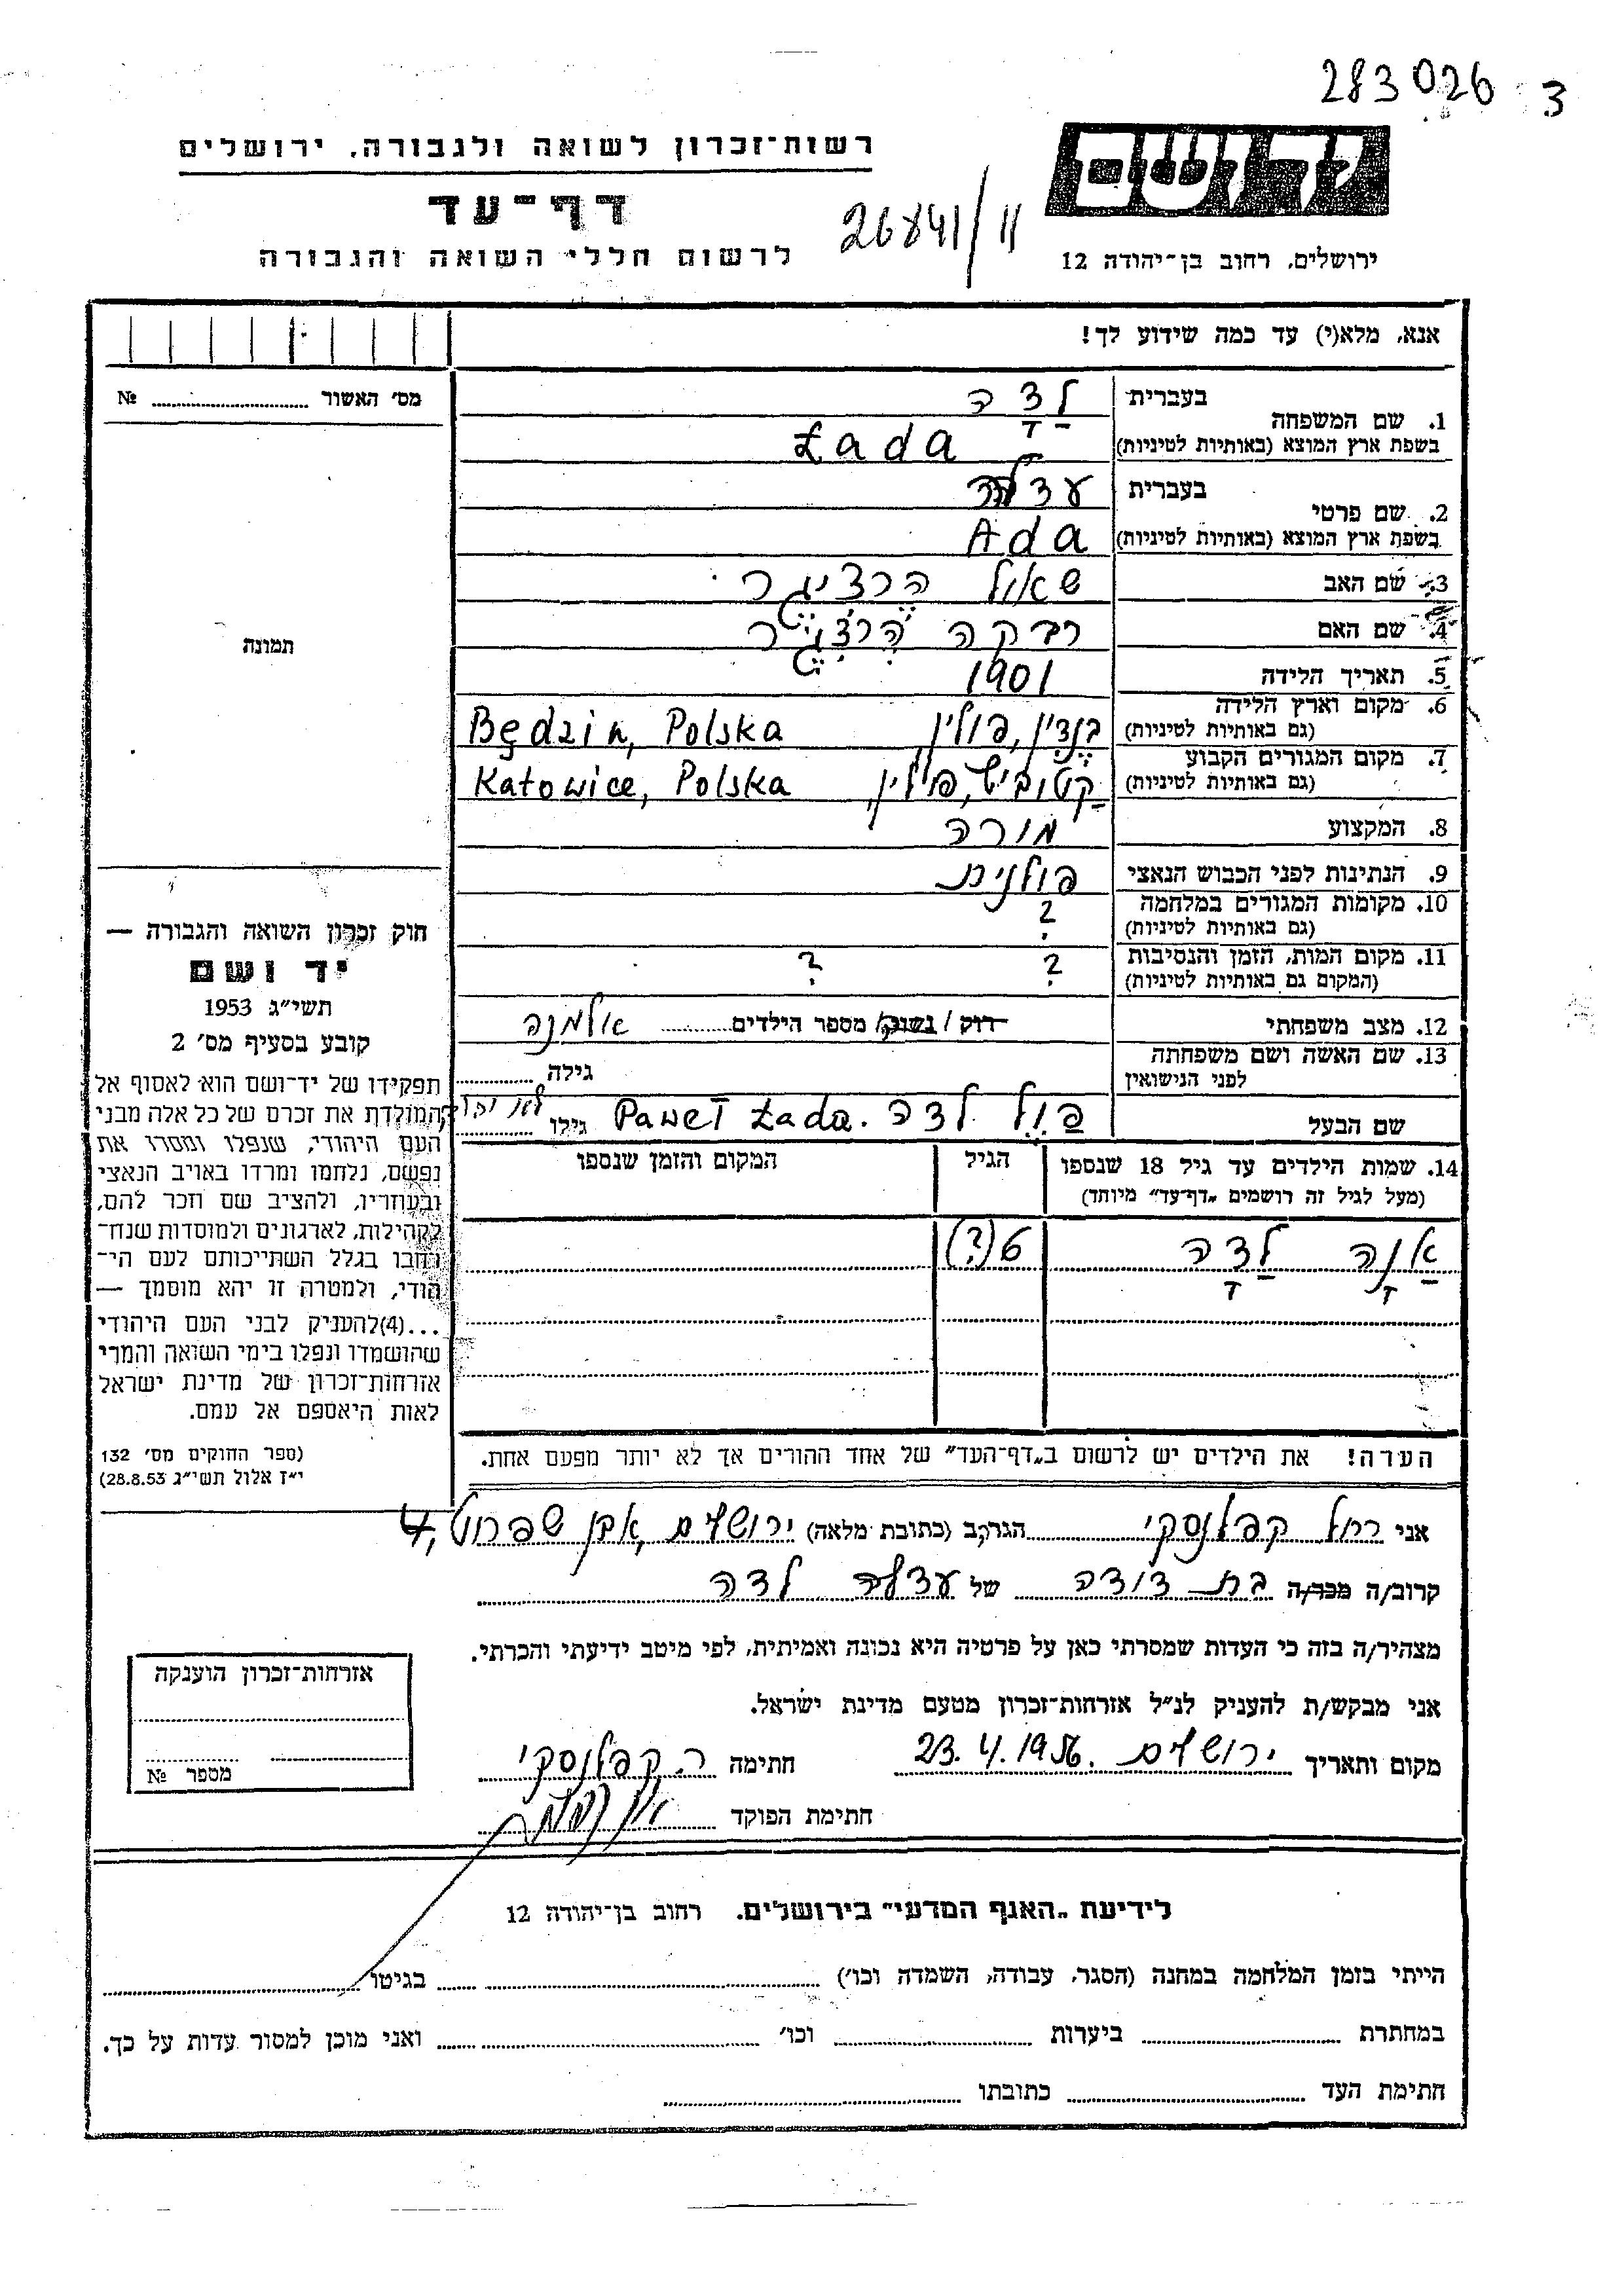 283026 3
יד ושם
רשות-זכרון לשואה ולגבורה, ירושלים
דף-עד
26841/11
לרשום חללי השואה והגבורה
ירושלים, רחוב בן-יהודה 12
אנא, מלא(י) עד כמה שידוע לך!
מס' האשור № 
בעברית לדה
1. שם המשפחה
בשפת ארץ המוצא (באותיות לטיניות) Łada
בעברית
2. שם פרטי
בשפת ארץ המוצא (באותיות לטיניות) Ada
3. שם האב שאול הרציגר
4. שם האם רבקה הרציגר
5. תאריך הלידה 1901
6. מקום וארץ הלידה
(גם באותיות לטיניות) בנדין, פולין, Będzin, Polska
7. מקום המגורים הקבוע
(גם באותיות לטיניות) קטוביץ, פולין, Katowice, Polska
8. המקצוע מורה
9. הנתינות לפני הכבוש הנאצי פולנית
10. מקומות המגורים במלחמה ?
(גם באותיות לטיניות)
11. מקום המות, הזמן והנסיבות ? ?
(המקום גם באותיות לטיניות)
12. מצב משפחתי רוק / נשוק / מספר הילדים אלמנה
13. שם האשה ושם משפחתה
לפני הנישואין גילה
שם הבעל פול לדה. Paweł Łada גילו לא ידוע
14. שמות הילדים עד גיל 18 שנספו הגיל המקום והזמן שנספו
(מעל לגיל זה רושמים "דף-עד" מיוחד)
אנה לדה 6(?)
הערה! את הילדים יש לרשום ב"דף-העד" של אחד ההורים אך לא יותר מפעם אחת.
תמונה
חוק זכרון השואה והגבורה —
יד ושם
תשי"ג 1953
קובע בסעיף מס' 2
תפקידו של יד-ושם הוא לאסוף אל
המולדת את זכרם של כל אלה מבני
העם היהודי, שנפלו ומסרו את
נפשם, נלחמו ומרדו באויב הנאצי
ובעוזריו, ולהציב שם וזכר להם,
לקהילות, לארגונים ולמוסדות שנח-
רבו בגלל השתייכותם לעם הי-
הודי, ולמטרה זו יהא מוסמך —
...(4)להעניק לבני העם היהודי
שהושמדו ונפלו בימי השואה והמרי
אזרחות-זכרון של מדינת ישראל
לאות היאספם אל עמם.
(ספר החוקים מס' 132
י"ז אלול תשי"ג 28.8.53)
אני רחל קפלנסקי הגר/ב (כתובת מלאה) ירושלים, אבן שפרוט 4,
קרוב/ה מכר/ה בת דודה של עדלה לדה
מצהיר/ה בזה כי העדות שמסרתי כאן על פרטיה היא נכונה ואמיתית, לפי מיטב ידיעתי והכרתי.
אני מבקש/ת להעניק לנ"ל אזרחות-זכרון מטעם מדינת ישראל.
מקום ותאריך ירושלים 23.4.1956. חתימה ר. קפלנסקי
חתימת הפוקד
אזרחות-זכרון הוענקה
מספר №
לידיעת "האגף המדעי" בירושלים, רחוב בן-יהודה 12
הייתי בזמן המלחמה במחנה (הסגר, עבודה, השמדה וכו') בגיטו
במחתרת ביערות וכו' ואני מוכן למסור עדות על כך.
חתימת העד כתובתו